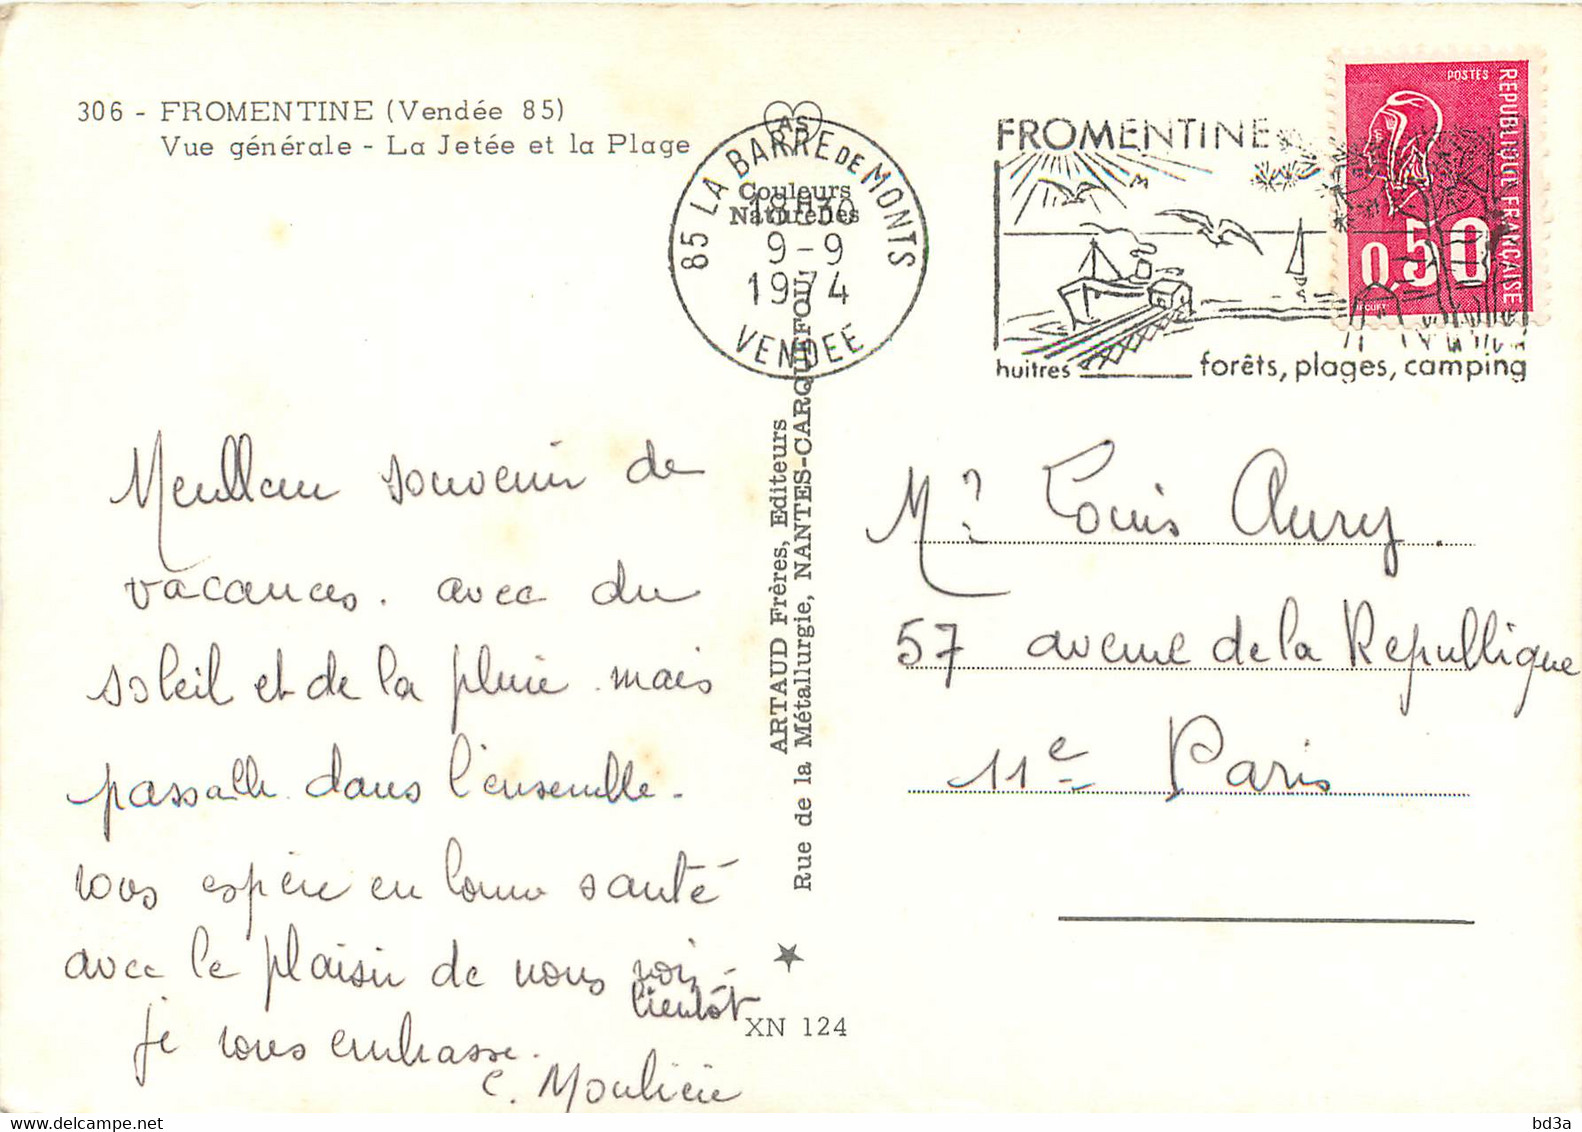 306 - FROMENTINE (Vendée 85)
Vue générale - La Jetée et la Plage
AS
Couleurs
Naturelles
85 LA BARRE DE MONTS
18H30
9-9
1974
VENDEE
FROMENTINE
huitres forêts, plages, camping
POSTES
REPUBLIQUE FRANÇAISE
0,50
Meilleur souvenir de
vacances. avec du
soleil et de la pluie. mais
passable dans l'ensemble.
vous espère en bonne santé
avec le plaisir de nous voir
bientôt
je vous embrasse.
C. Moulicie
ARTAUD Frères, Editeurs
Rue de la Métallurgie, NANTES-CARQUEFOU
XN 124
Mr Louis Aury.
57 avenue de la Republlique
11e Paris
delcampe.net
bd3a